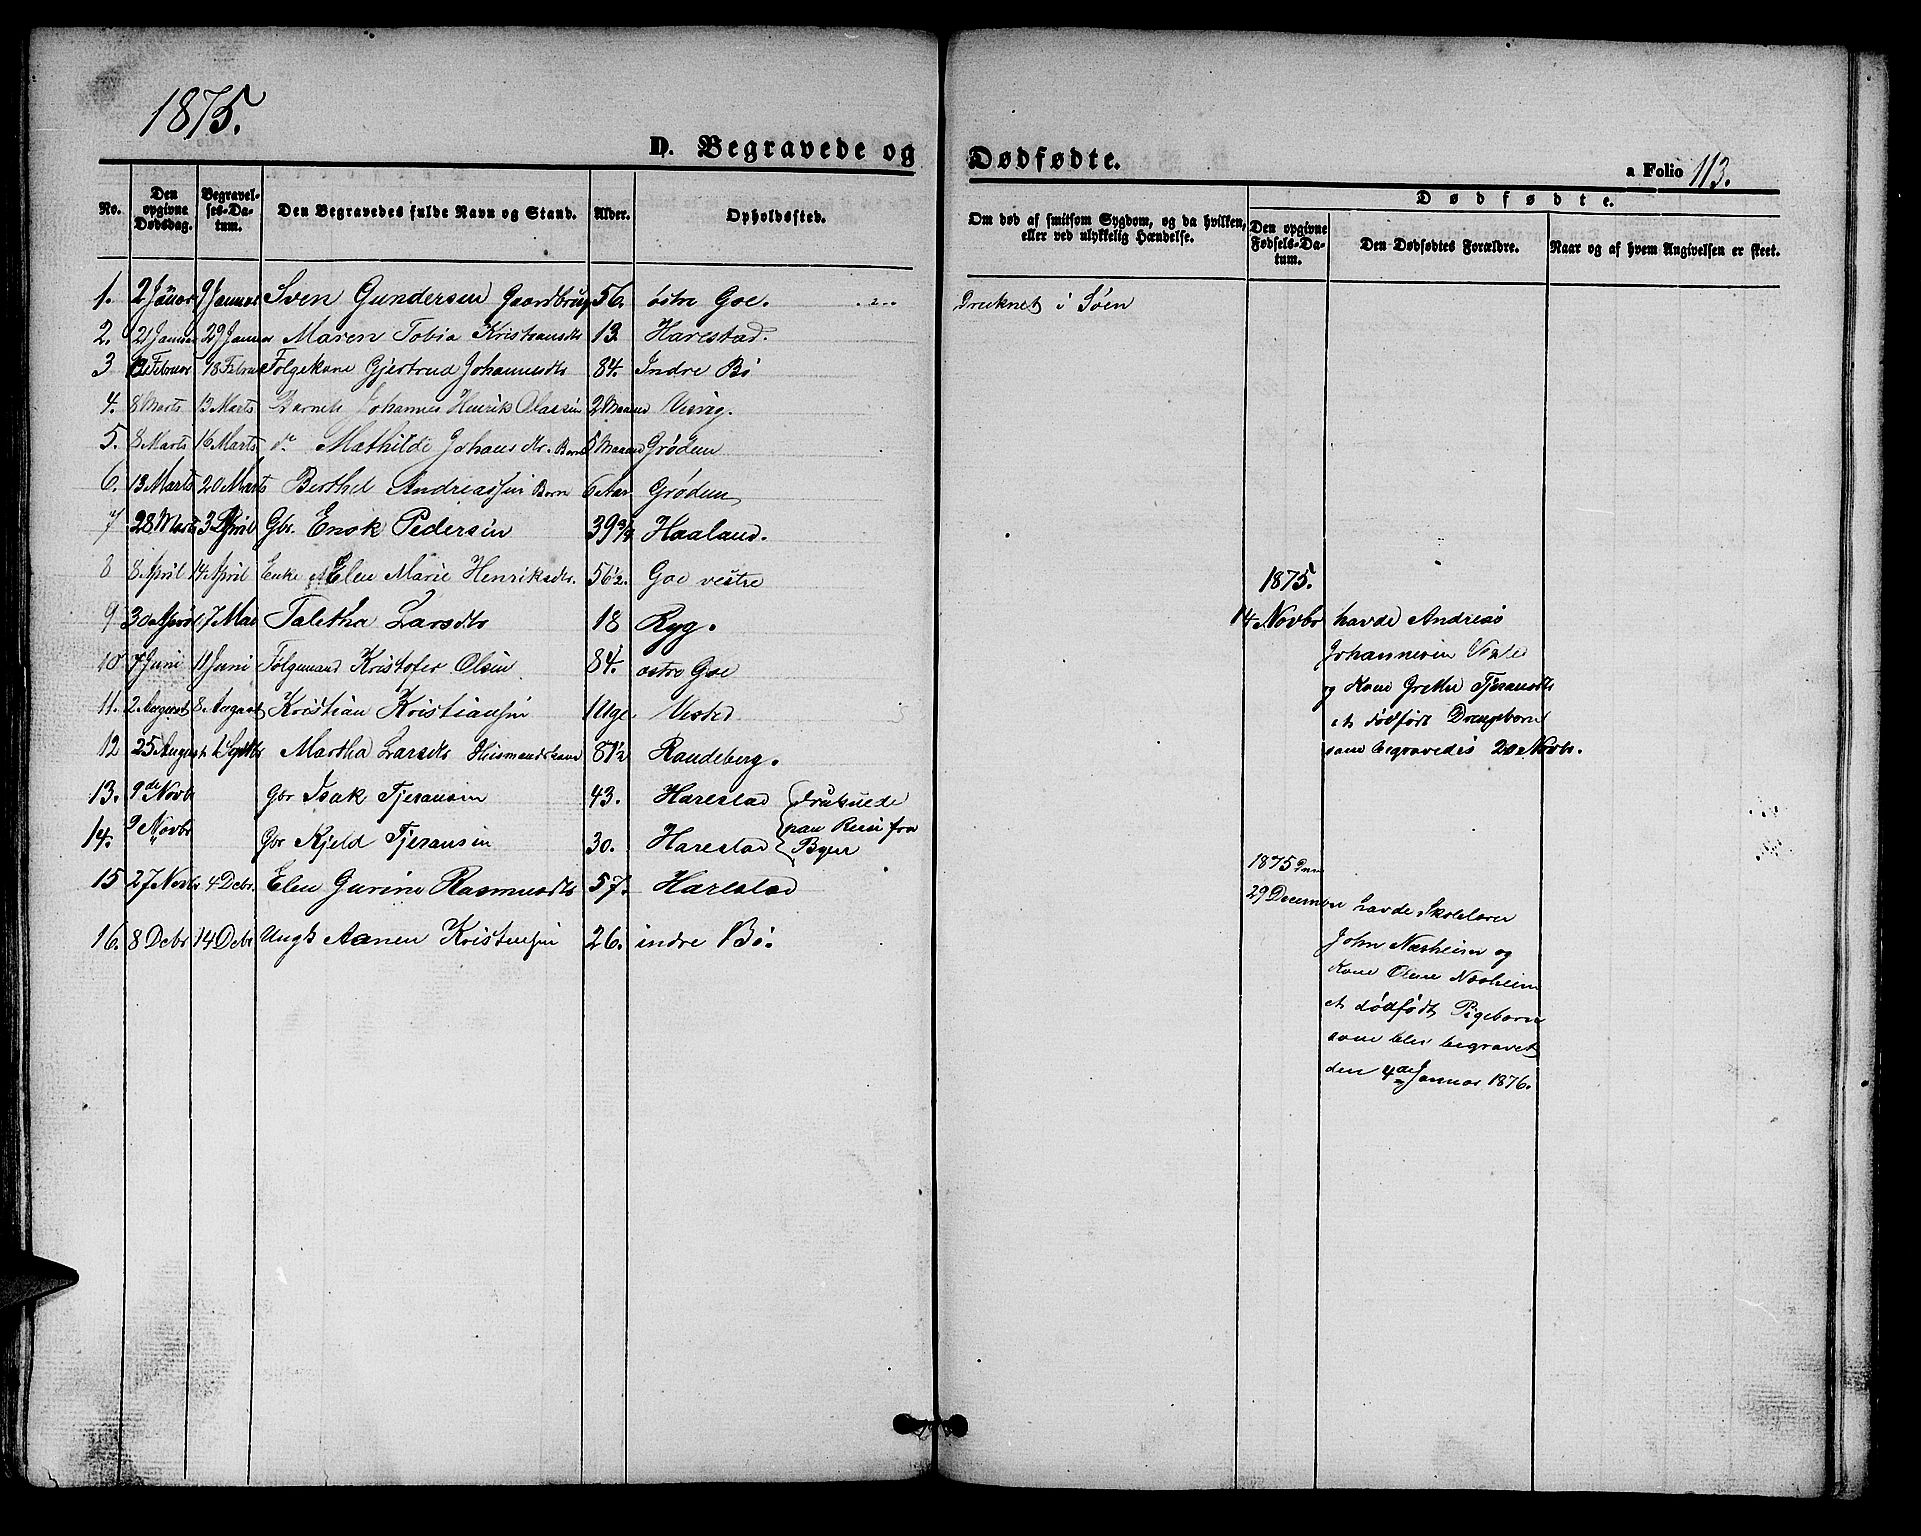 1875.
D. Begravede og Dødfødte.
a Folio 113.
No.
Den opgivne Dødsdag.
Begravelses-Datum.
Den Begravedes fulde Navn og Stand.
Alder.
Opholdssted.
Om død af smitsom Sygdom, og da hvilken, eller ved ulykkelig Hændelse.
Dødfødte.
Den opgivne Fødsels-Datum.
Den Dødfødtes Forældre.
Naar og af hvem Angivelsen er skeet.
1. 2 Januar 9 Januar Sven Gundersen Gaardbrug 56. østre Goe. Druknet i Søen
2. 21 Januar 29 Januar Maren Tobia Kristiansdtr 13 Harestad.
3 Februar 18 Februar Følgekone Gjertrud Johannesdtr 84. Indre Bø
4. 8 Marts 13 Marts Barnet Johannes Henrik Olassen 2 Maaned Viig.
5. 8 Marts 16 Marts do Mathilde Johansdtr. Barn 5 Maaned Grødem
6. 13 Marts 20 Marts Berthel Andreassen Barn 6 Aar Grødem
7 28 Marts 3 April Gbr. Enok Pedersen 39 3/4 Haaland.
8 8 April 14 April Enke Elen Marie Henriksdtr. 56 1/2. Goe vestre
9 30 April 7 Mai Taletha Larsdtr 18 Ryg.
10 7 Juni 11 Juni Følgemand Kristofer Olsen 84. østre Goe
11. 2 August 8. August Kristian Kristiansen 1 Uge
12 25 August 1 Septbr Martha Larsdtr Huismandskone 81 1/2 Randeberg.
13. 9de Novb Gbr Isak Tjeransen 43. Harestad druknede
14. 9 Novbr Gbr Kjeld Tjeransen 30. Harestad paa Reise fra Byen
15 27 Novbr 4 Debr. Elen Gurine Rasmusdtr 57. Harestad
16. 8 Debr 14 Debr Ungk Aanen Kristensen 26. indre Bø.
1875.
14 Novbr havde Andreas
Johannesen
og Kone Grethe Tjeransdtr
et dødfødt Drengebarn
som begravedes 20 Novbr.
1875 Den
29 December havde Skolelærer
John Næsheim og
Kone Olene Næsheim
et dødfødt Pigebarn
som blev begravet
den 4de Januar 1876.